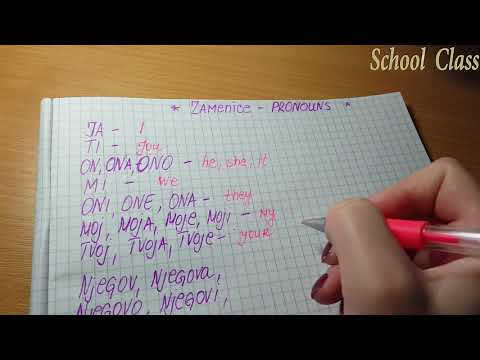 School Class
* ZAMENICE - PRONOUNS *
JA - I
TI - you
ON, ONA, ONO - he, she, it
MI - we
ONI, ONE, ONA - they
MOJ, MOJA, MOJE, MOJI - my
TVOJ, TVOJA, TVOJE - your
NJEGOV, NJEGOVA,
NJEGOVO, NJEGOVI,